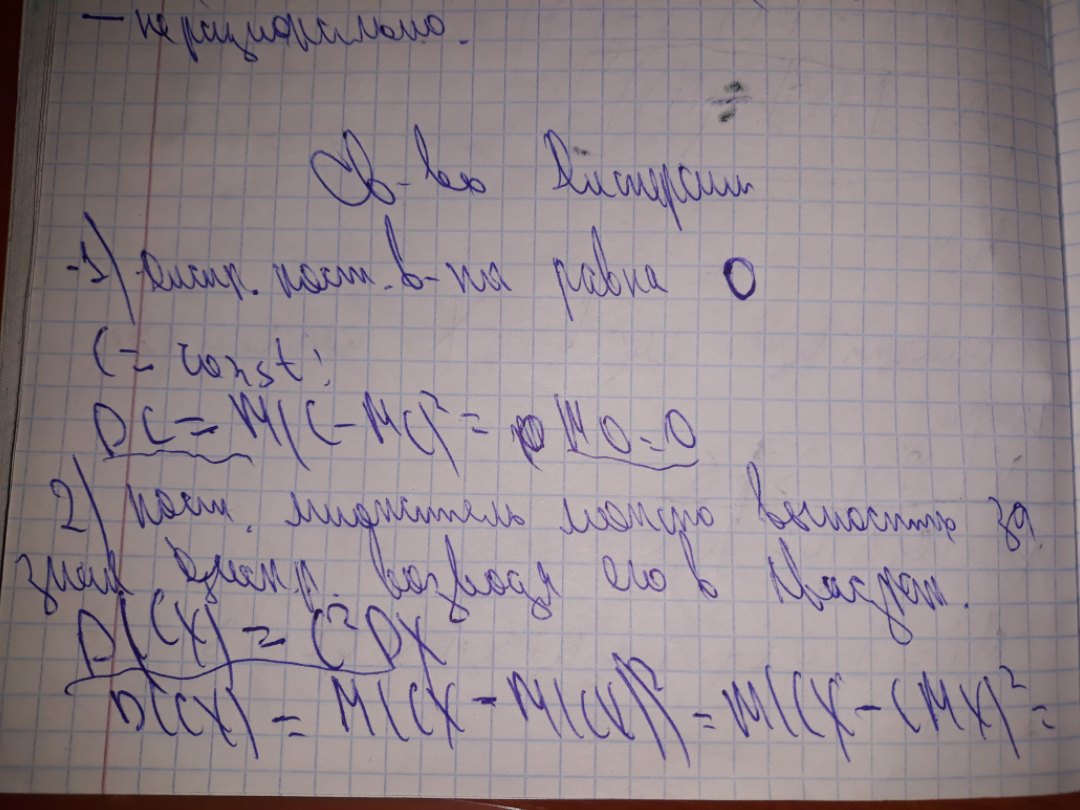 — нерационально.
Св-во Дисперсии
1) диспр. пост. в-ны равна 0
C = const:
DC = M(C - MC)² = M0 = 0
2) пост. множитель можно выносить за
знак диспр. возводя его в квадрат.
D(CX) = C²DX
D(CX) = M(CX - M(CX))² = M(CX - CMX)² =